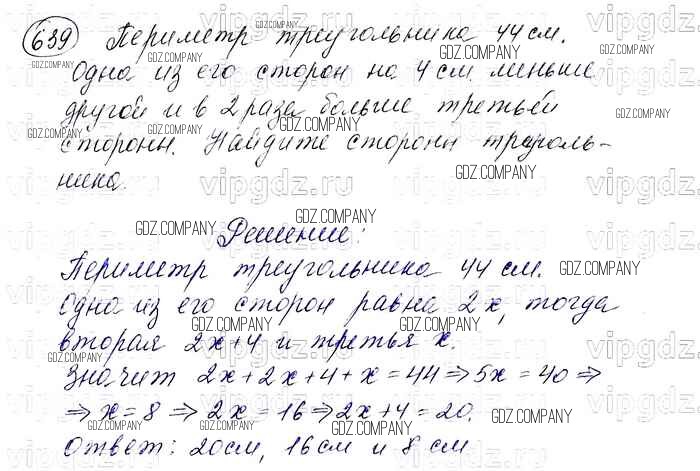 639 Периметр треугольника 44 см.
Одна из его сторон на 4 см меньше
другой и в 2 раза больше третьей
стороны. Найдите стороны треуголь-
ника.
Решение:
Периметр треугольника 44 см.
Одна из его сторон равна 2x, тогда
вторая 2x+4 и третья x.
Значит 2x+2x+4+x=44⇒5x=40⇒
⇒x=8⇒2x=16⇒2x+4=20.
Ответ: 20см, 16см и 8 см
vipgdz.ru
GDZ.COMPANY